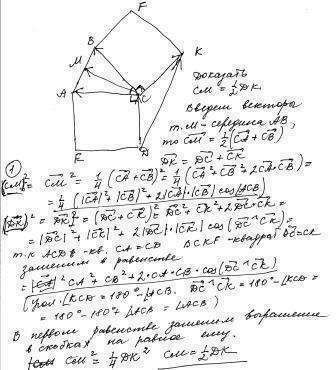 F
B
M
K
A
C
E
D
Доказать
CM = 1/2 DK
Введем векторы
т. M - середина AB,
то CM = 1/2 (CA + CB)
DK = DC + CK
① |CM|² = CM² = 1/4 (CA + CB)² = 1/4 (CA² + CB² + 2CA·CB) =
= 1/4 (|CA|² + |CB|² + 2|CA|·|CB| cos∠ACB)
|DK|² = DK² = (DC + CK)² = DC² + CK² + 2DC·CK =
= |DC|² + |CK|² + 2|DC|·|CK| cos(DC^CK) =
т.к ACDE - кв. CA = CD BCKF - квадрат BC = CK
заменим в равенстве
= CA² + CB² + 2·CA·CB·cos(DC^CK)
(угол ∠KCD = 180° - ∠ACB. DC^CK = 180° - ∠KCD =
= 180° - 180° + ∠ACB = ∠ACB)
В первом равенстве заменим выражение
в скобках на равное ему.
CM² = 1/4 DK² CM = 1/2 DK